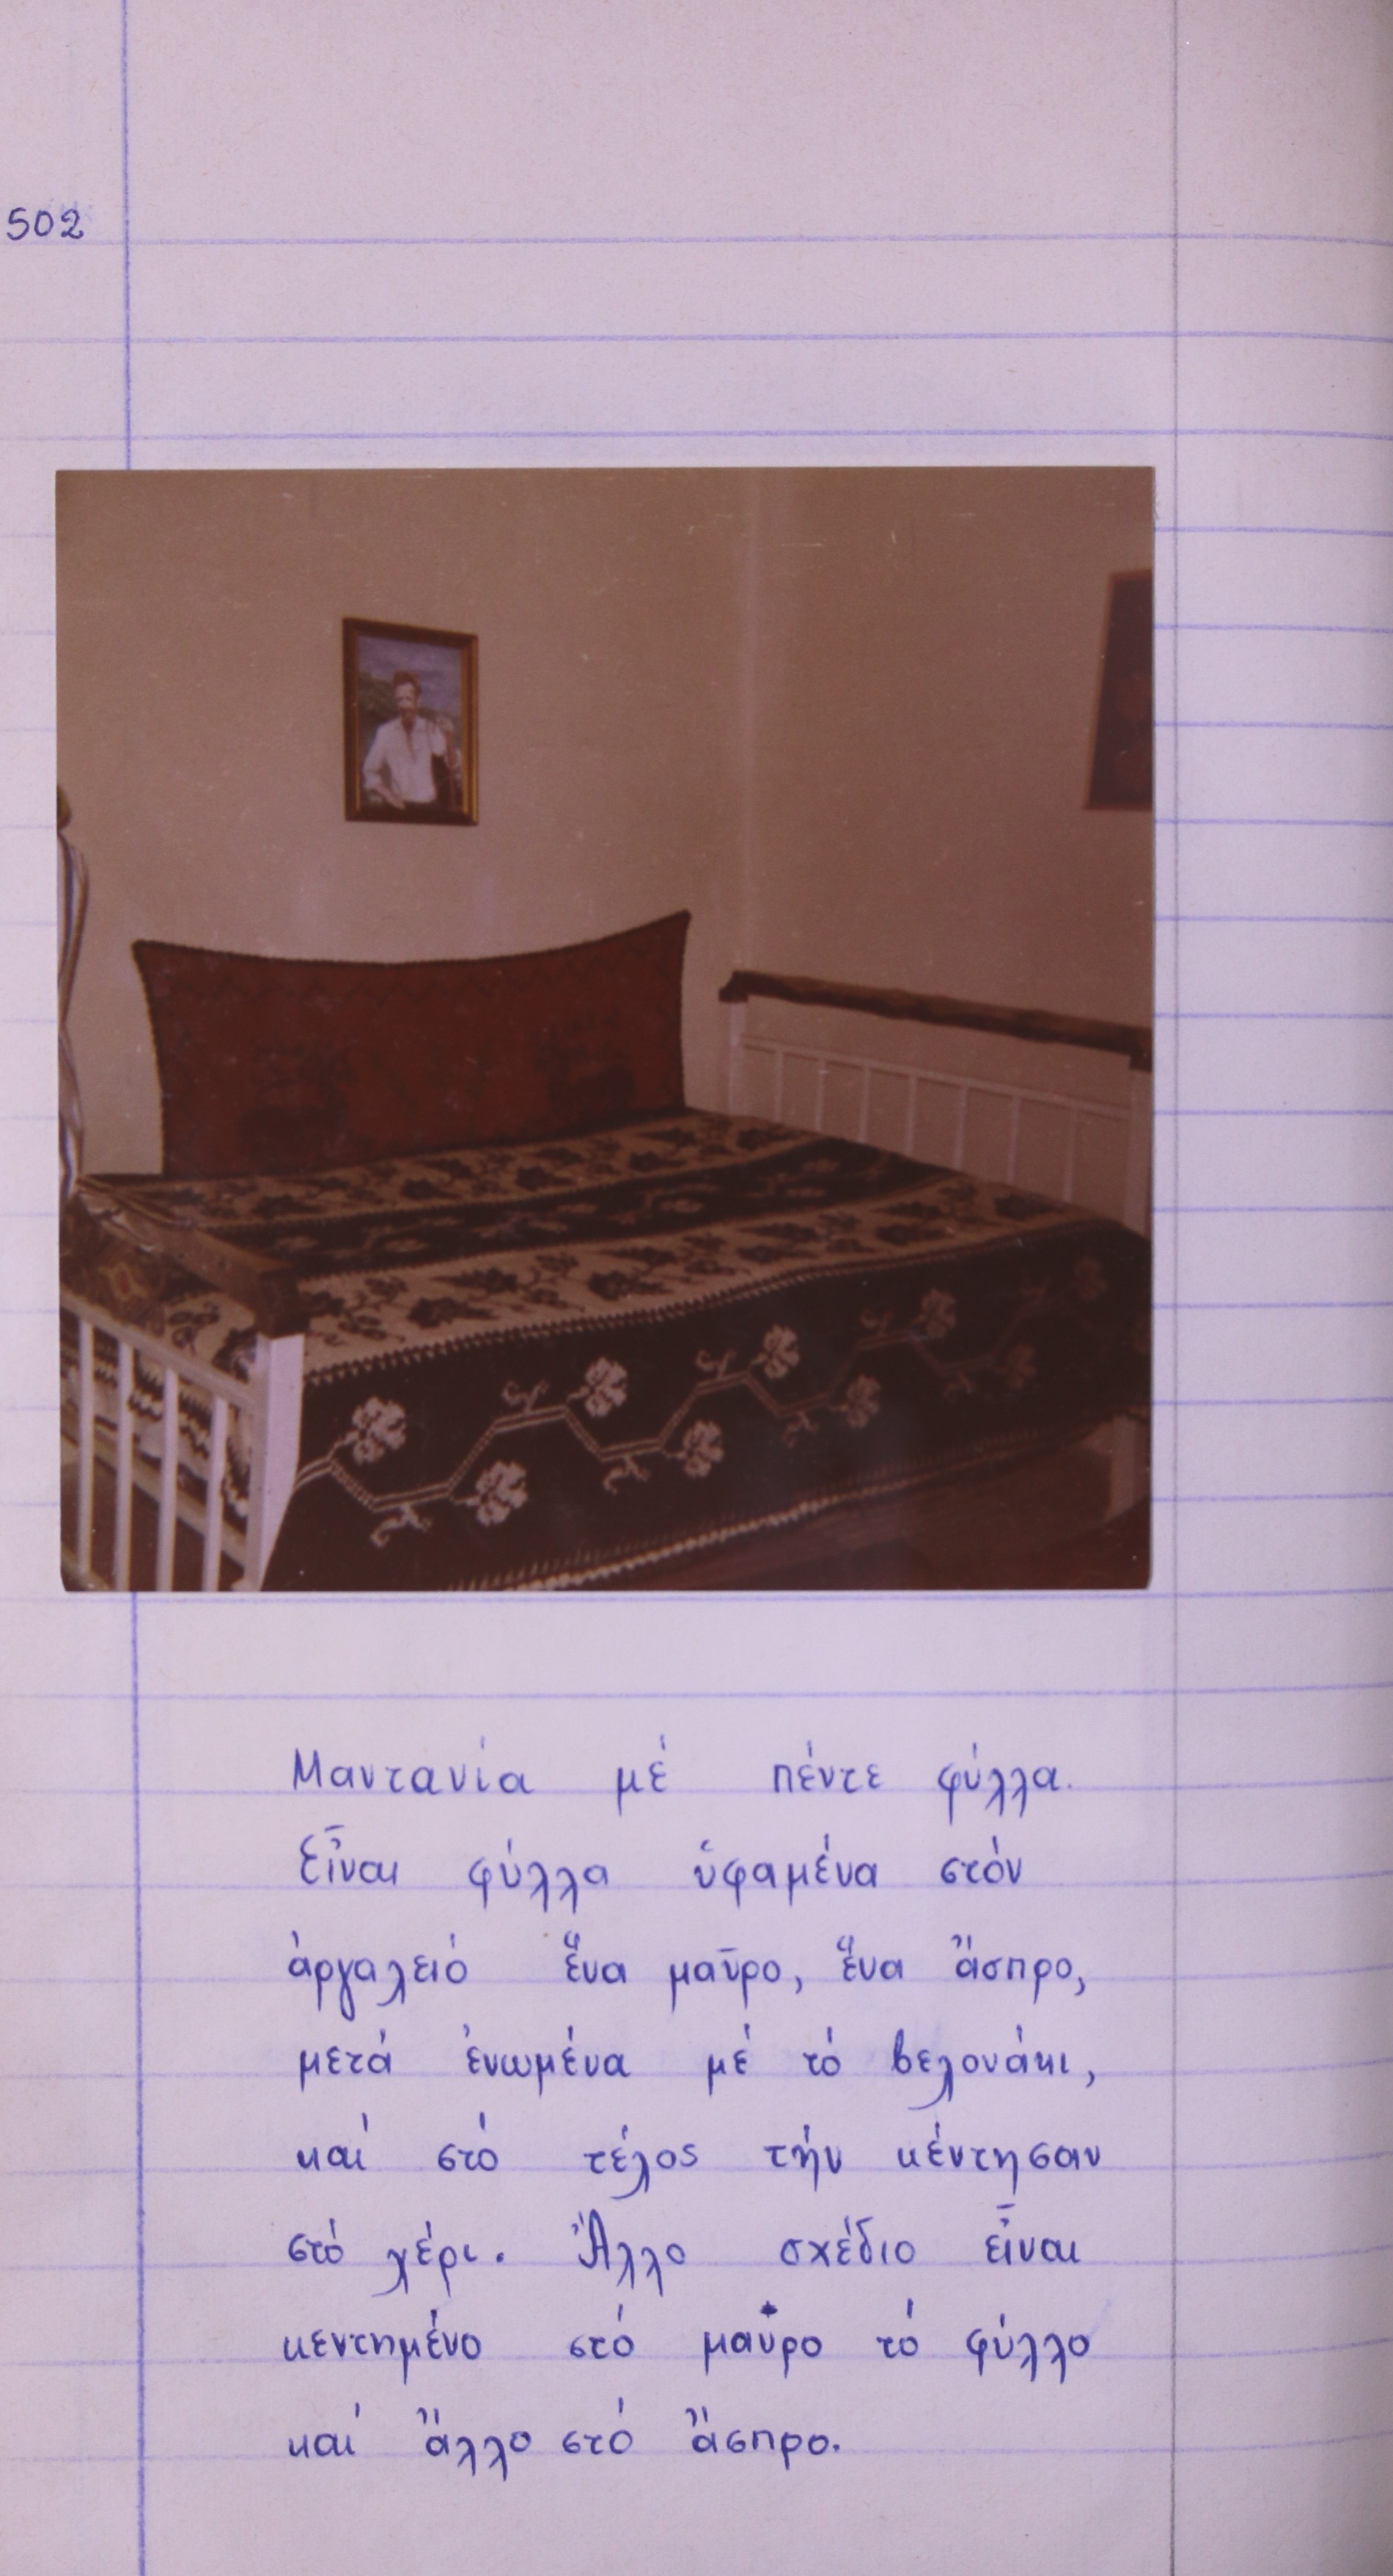 502
Μαντανία μέ πέντε φύλλα.
Εἶναι φύλλα ὑφαμένα στόν
ἀργαλειό ἕνα μαῦρο, ἕνα ἄσπρο,
μετά ἑνωμένα μέ τό βελονάκι,
καί στό τέλος τήν κέντησαν
στό χέρι. Ἄλλο σχέδιο εἶναι
κεντημένο στό μαῦρο τό φύλλο
καί ἄλλο στό ἄσπρο.